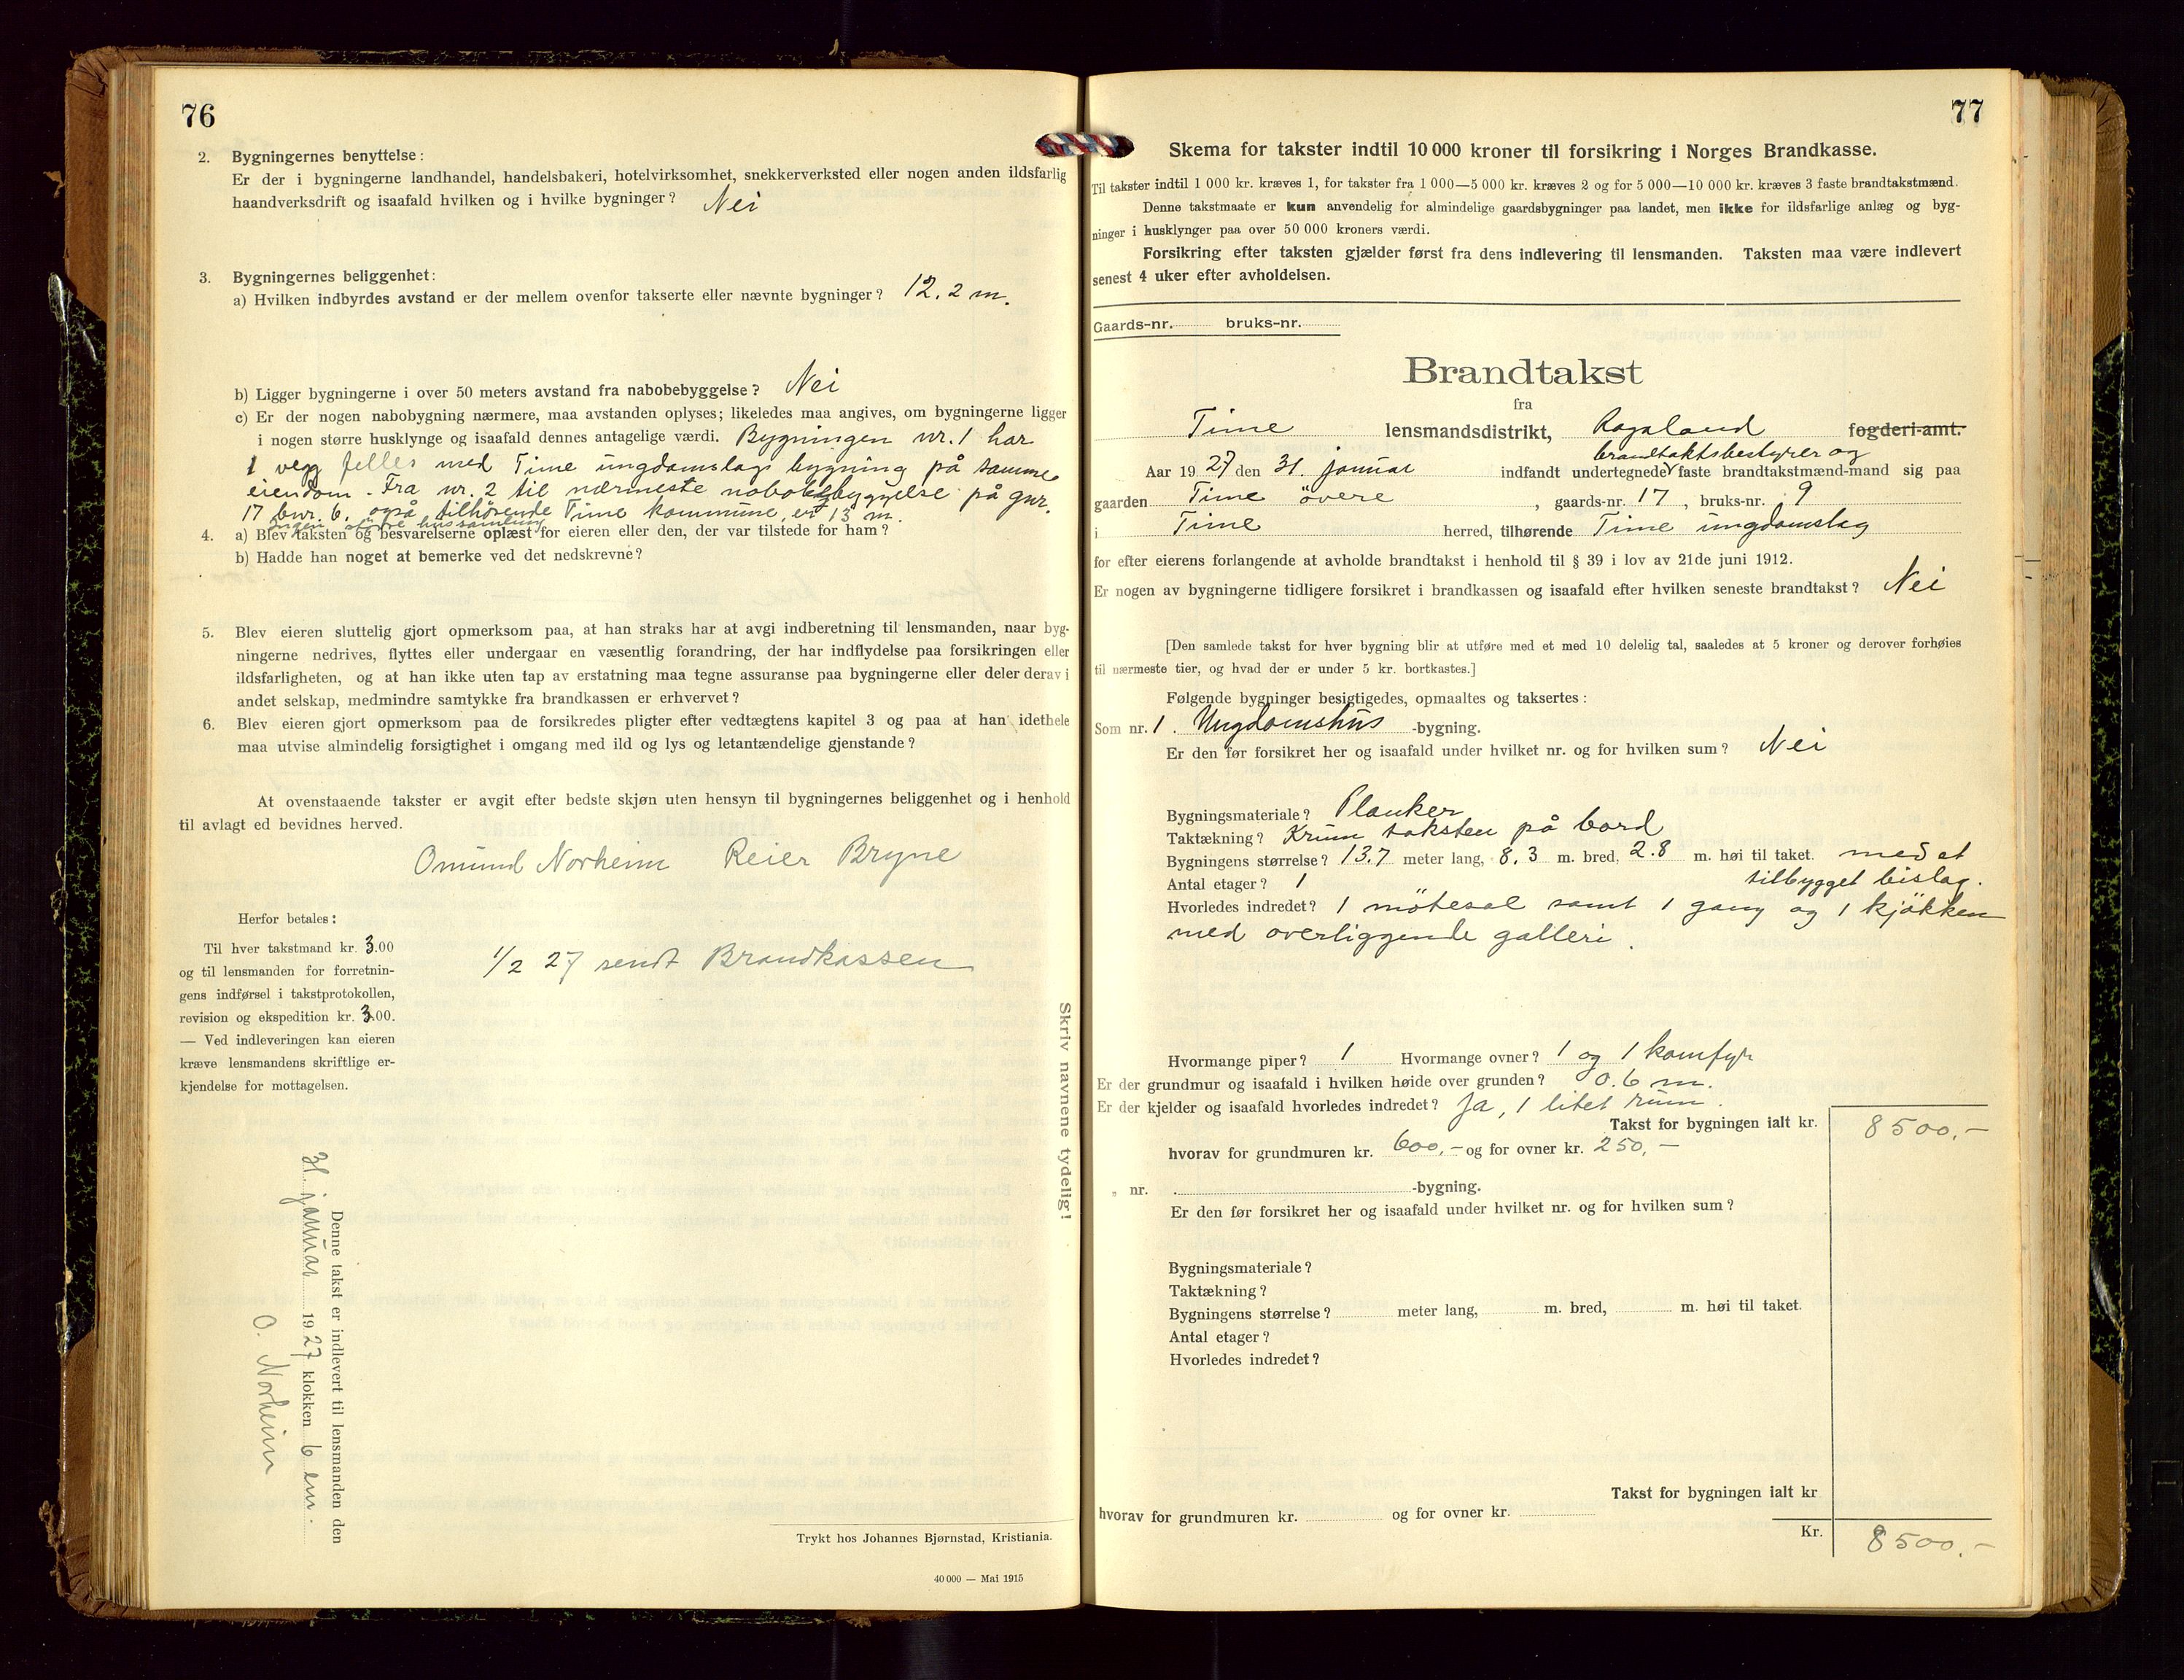 76
2. Bygningernes benyttelse:
Er der i bygningerne landhandel, handelsbakeri, hotelvirksomhet, snekkerverksted eller nogen anden ildsfarlig
haandverksdrift og isaafald hvilken og i hvilke bygninger? Nei
3. Bygningernes beliggenhet:
a) Hvilken indbyrdes avstand er der mellem ovenfor takserte eller nævnte bygninger? 12.2 m.
b) Ligger bygningerne i over 50 meters avstand fra nabobebyggelse? Nei
c) Er der nogen nabobygning nærmere, maa avstanden oplyses; likeledes maa angives, om bygningerne ligger
i nogen større husklynge og isaafald dennes antagelige værdi. Bygningen nr. 1 har
1 vegg felles med Time ungdomslags bygning på samme
eiendom. Fra nr. 2 til nærmeste nabobebyggelse på gnr.
17 bnr. 6, også tilhørende Time kommune, er 13 m.
Ingen større hussamling
4. a) Blev taksten og besvarelserne oplæst for eieren eller den, der var tilstede for ham?
b) Hadde han noget at bemerke ved det nedskrevne?
5. Blev eieren sluttelig gjort opmerksom paa, at han straks har at avgi indberetning til lensmanden, naar byg-
ningerne nedrives, flyttes eller undergaar en væsentlig forandring, der har indflydelse paa forsikringen eller
ildsfarligheten, og at han ikke uten tap av erstatning maa tegne assuranse paa bygningerne eller deler derav i
andet selskap, medmindre samtykke fra brandkassen er erhvervet?
6. Blev eieren gjort opmerksom paa de forsikredes pligter efter vedtægtens kapitel 3 og paa at han idethele
maa utvise almindelig forsigtighet i omgang med ild og lys og letantændelige gjenstande?
At ovenstaaende takster er avgit efter bedste skjøn uten hensyn til bygningernes beliggenhet og i henhold
til avlagt ed bevidnes herved.
Omund Norheim Reier Bryne
Herfor betales:
Til hver takstmand kr. 3.00
og til lensmanden for forretnin-
gens indførsel i takstprotokollen,
revision og ekspedition kr. 3.00.
— Ved indleveringen kan eieren
kræve lensmandens skriftlige er-
kjendelse for mottagelsen.
1/2 27 sendt Brandkassen
Skriv navnene tydelig!
Denne takst er indlevert til lensmanden den
31. januar 1927 klokken 6 em.
O. Norheim
Trykt hos Johannes Bjørnstad, Kristiania.
40 000 — Mai 1915
77
Skema for takster indtil 10 000 kroner til forsikring i Norges Brandkasse.
Til takster indtil 1 000 kr. kræves 1, for takster fra 1 000—5 000 kr. kræves 2 og for 5 000—10 000 kr. kræves 3 faste brandtakstmænd.
Denne takstmaate er kun anvendelig for almindelige gaardsbygninger paa landet, men ikke for ildsfarlige anlæg og byg-
ninger i husklynger paa over 50 000 kroners værdi.
Forsikring efter taksten gjælder først fra dens indlevering til lensmanden. Taksten maa være indlevert
senest 4 uker efter avholdelsen.
Gaards-nr. bruks-nr.
Brandtakst
fra
Time lensmandsdistrikt, Rogaland fogderi-amt.
brandtaktsbestyrer og
Aar 1927 den 31. januar indfandt undertegnede faste brandtakstmænd-mand sig paa
gaarden Time övere, gaards-nr. 17, bruks-nr. 9
i Time herred, tilhørende Time ungdomslag
for efter eierens forlangende at avholde brandtakst i henhold til § 39 i lov av 21de juni 1912.
Er nogen av bygningerne tidligere forsikret i brandkassen og isaafald efter hvilken seneste brandtakst? Nei
[Den samlede takst for hver bygning blir at utføre med et med 10 delelig tal, saaledes at 5 kroner og derover forhøies
til nærmeste tier, og hvad der er under 5 kr. bortkastes.]
Følgende bygninger besigtigedes, opmaaltes og taksertes:
Som nr. 1. Ungdomshus -bygning.
Er den før forsikret her og isaafald under hvilket nr. og for hvilken sum? Nei
Bygningsmateriale? Planker
Taktækning? Krum taksten på bord
Bygningens størrelse? 13.7 meter lang, 8.3 m. bred, 2.8 m. høi til taket. med et
Antal etager? 1 tilbygget bislag.
Hvorledes indredet? 1 mötesal samt 1 gang og 1 kjökken
med overliggende galleri.
Hvormange piper? 1 Hvormange ovner? 1 og 1 komfyr
Er der grundmur og isaafald i hvilken høide over grunden? 0.6 m.
Er der kjelder og isaafald hvorledes indredet? Ja, 1 litet rum.
Takst for bygningen ialt kr. 8500.-
hvorav for grundmuren kr. 600.- og for ovner kr. 250.-
„ nr. . -bygning.
Er den før forsikret her og isaafald under hvilket nr. og for hvilken sum?
Bygningsmateriale?
Taktækning?
Bygningens størrelse? meter lang, m. bred, m. høi til taket.
Antal etager?
Hvorledes indredet?
Takst for bygningen ialt kr
hvorav for grundmuren kr. og for ovner kr.
Kr. 8500.-